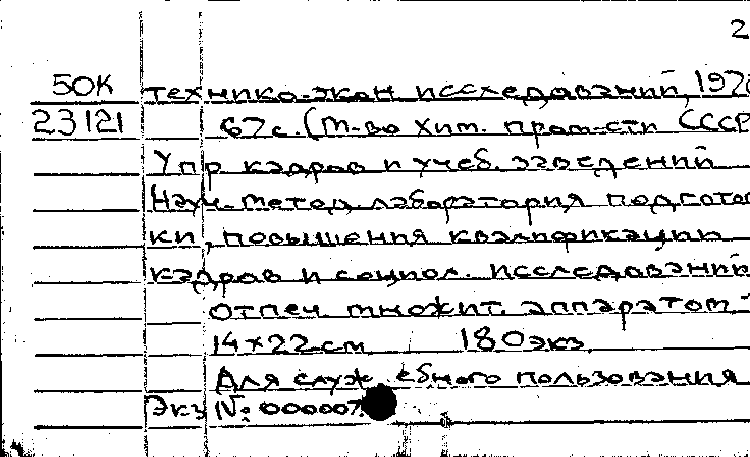 2
50К технико-экон исследований, 197
23121 67 с. (М-во хим. пром-сти СССР
Упр кадров и учеб. заведений
Науч.-метод. лаборатория подготов
ки, повышения квалификации
кадров и социол. исследований
Отпеч. множит. аппаратом
14×22 см 180 экз.
Для служебного пользования
Экз № 000007